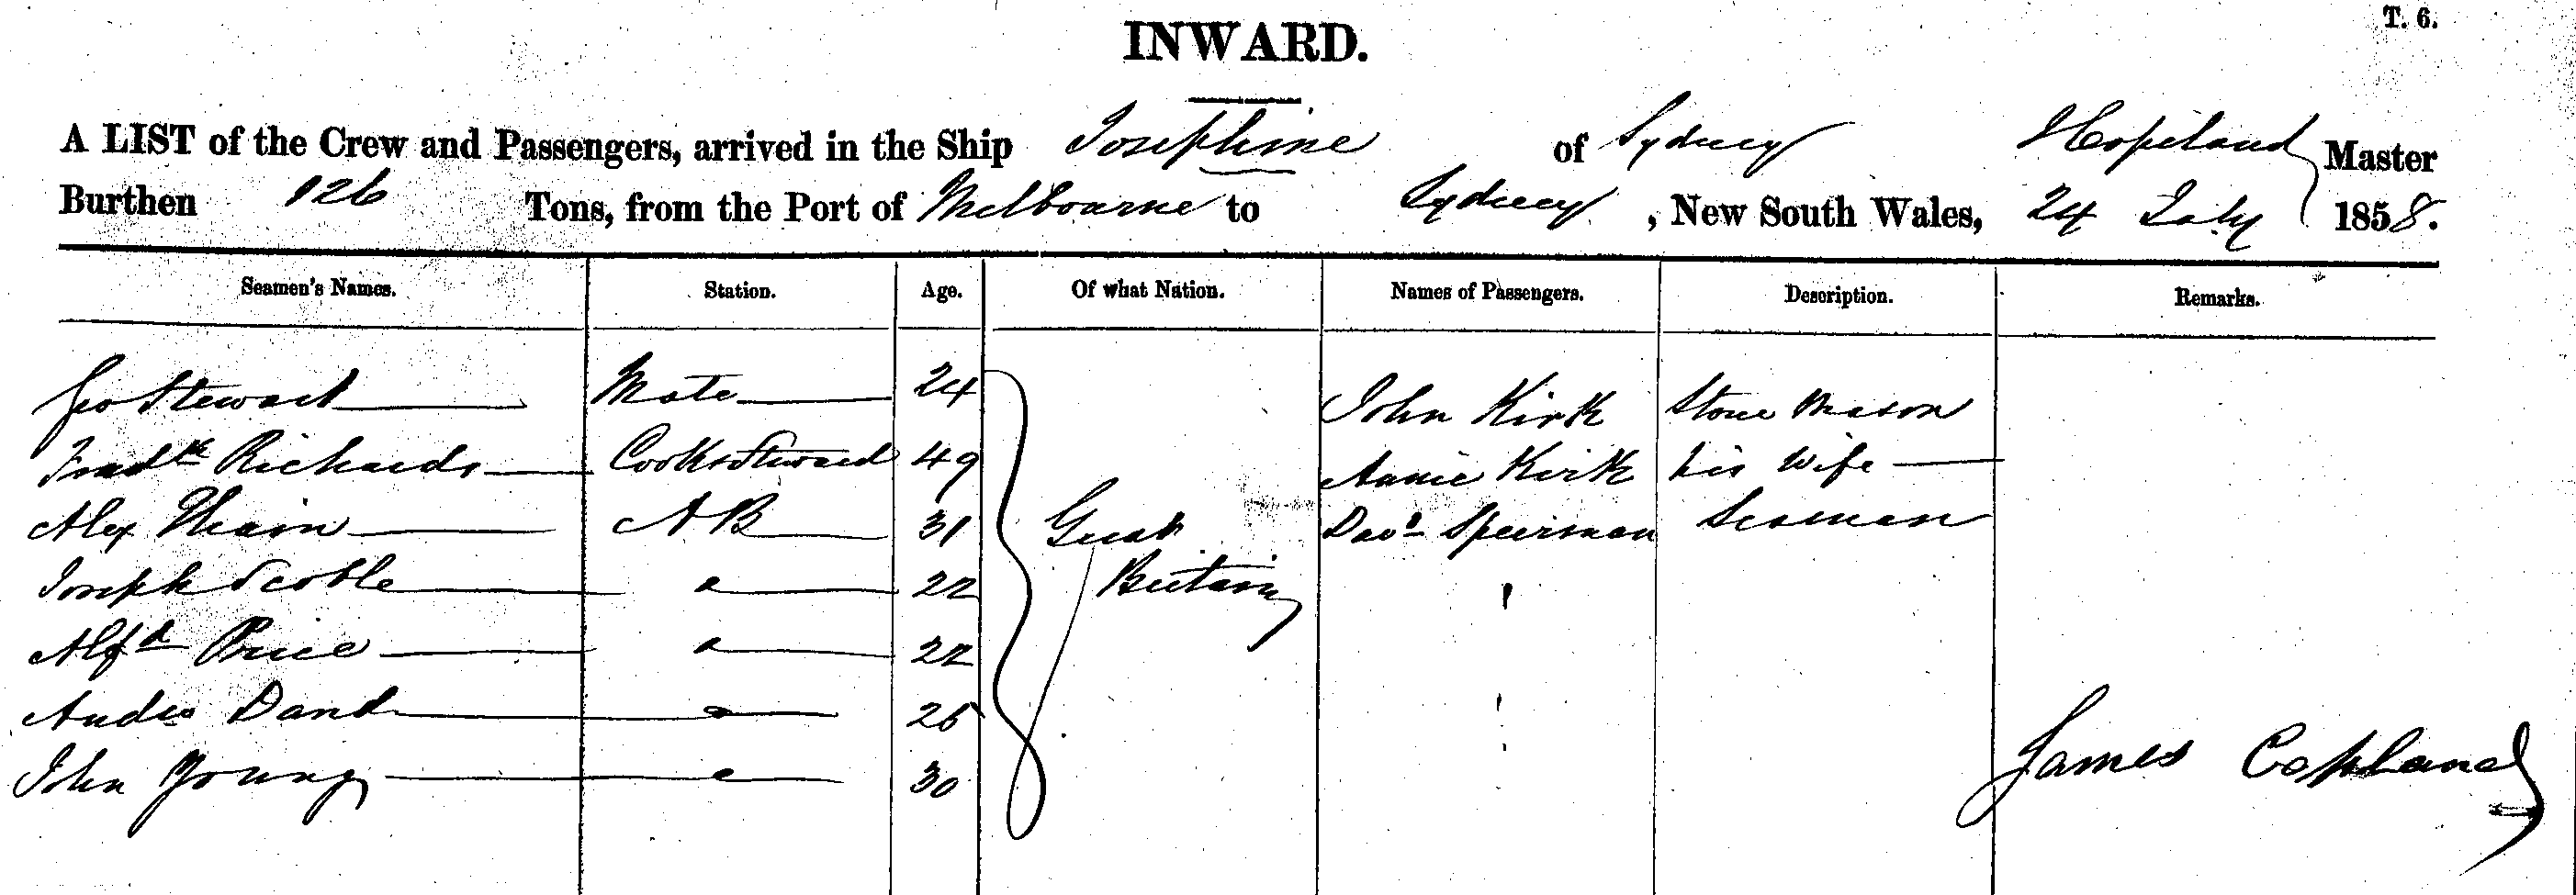 T. 6.
INWARD.
A LIST of the Crew and Passengers, arrived in the Ship Josephine of Sydney Copeland Master
Burthen 126 Tons, from the Port of Melbourne to Sydney, New South Wales, 24 July 1858.
Seamen's Names. Station. Age. Of what Nation. Names of Passengers. Description. Remarks.
Geo Stewart Mate 24 John Kirk Stone Mason
Fredk Richards Cook & Steward 49 Annie Kirk his Wife
Alex A B 31 Great Davd Speirman Seaman
Joseph Scoble 22 Britain
Alfd Price 22
Andw Dand 26
John Young 30 James Copland